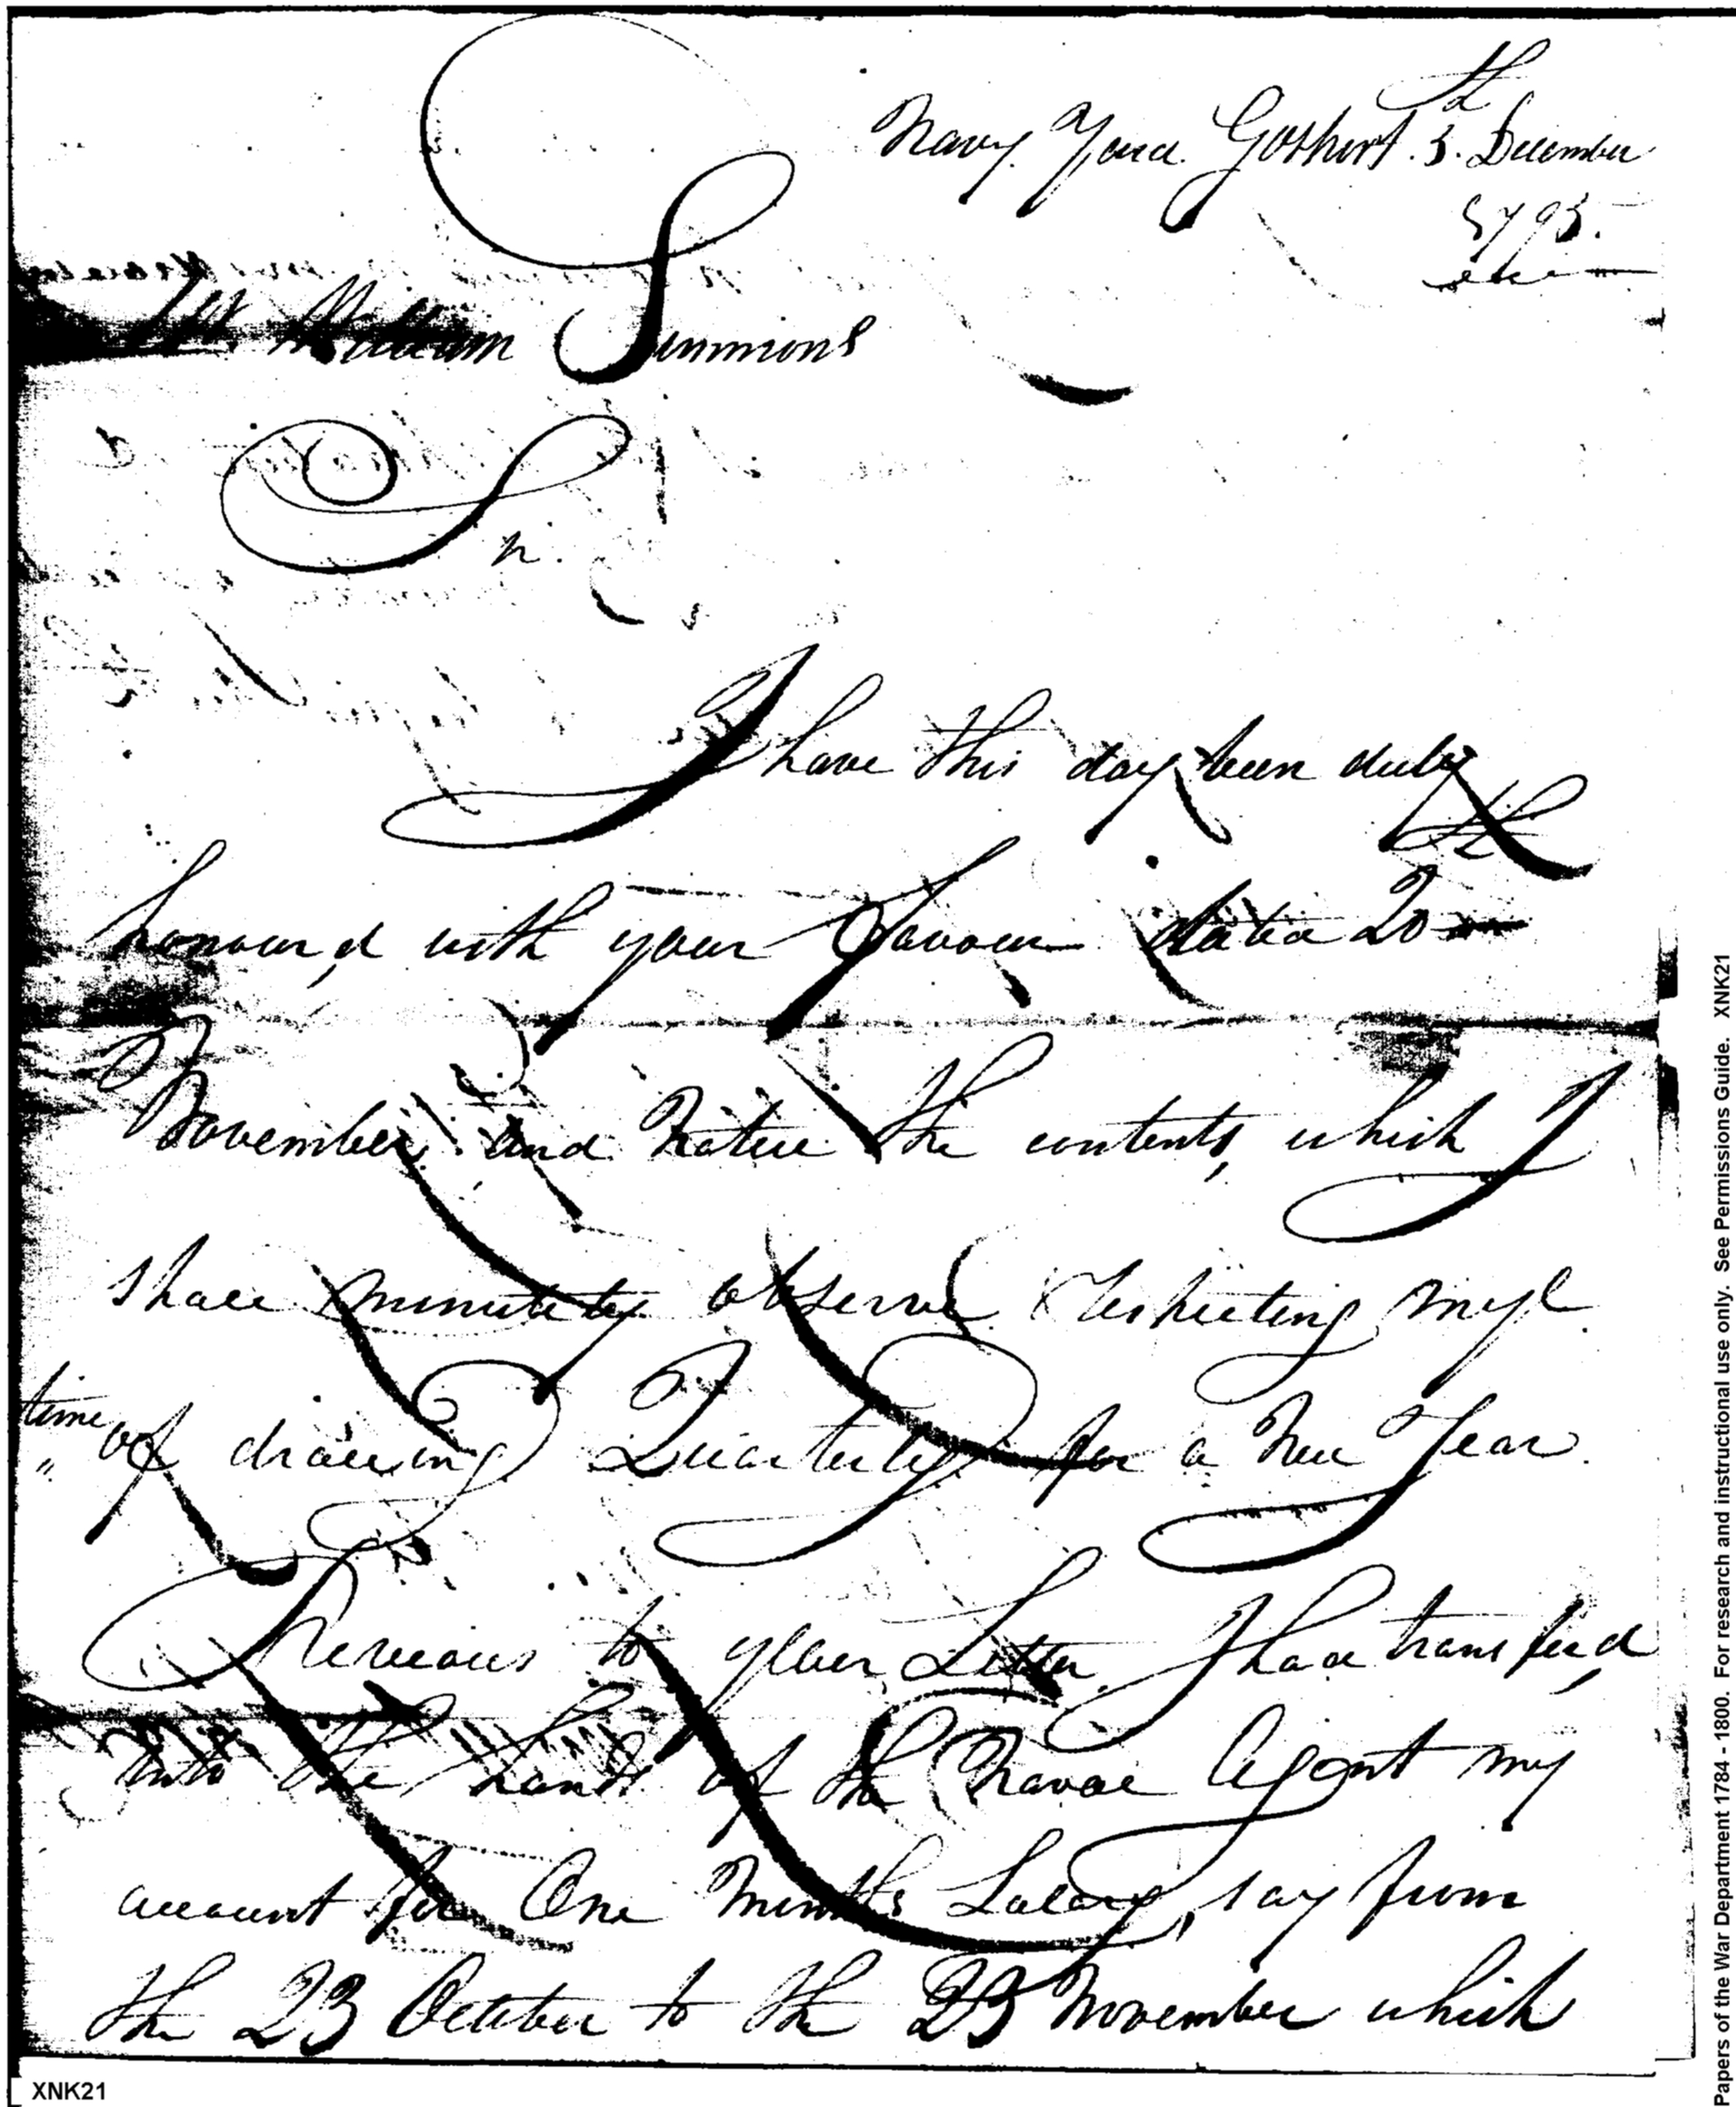 Navy Yard Gosport. 3.th December
1795.
Mr. William Simmons
Sir.
I have this day been duly
honour,d with your favour dated 20th
November and Notice the contents, which I
shall minutely observe respecting my
time of drawing Quarterly for a New Year
Previous to your Letter I had transferd
into the hands of the Naval Agent my
account for One Months Salary, say from
the 23 October to the 23 November which
XNK21
Papers of the War Department 1784 - 1800. For research and instructional use only. See Permissions Guide. XNK21